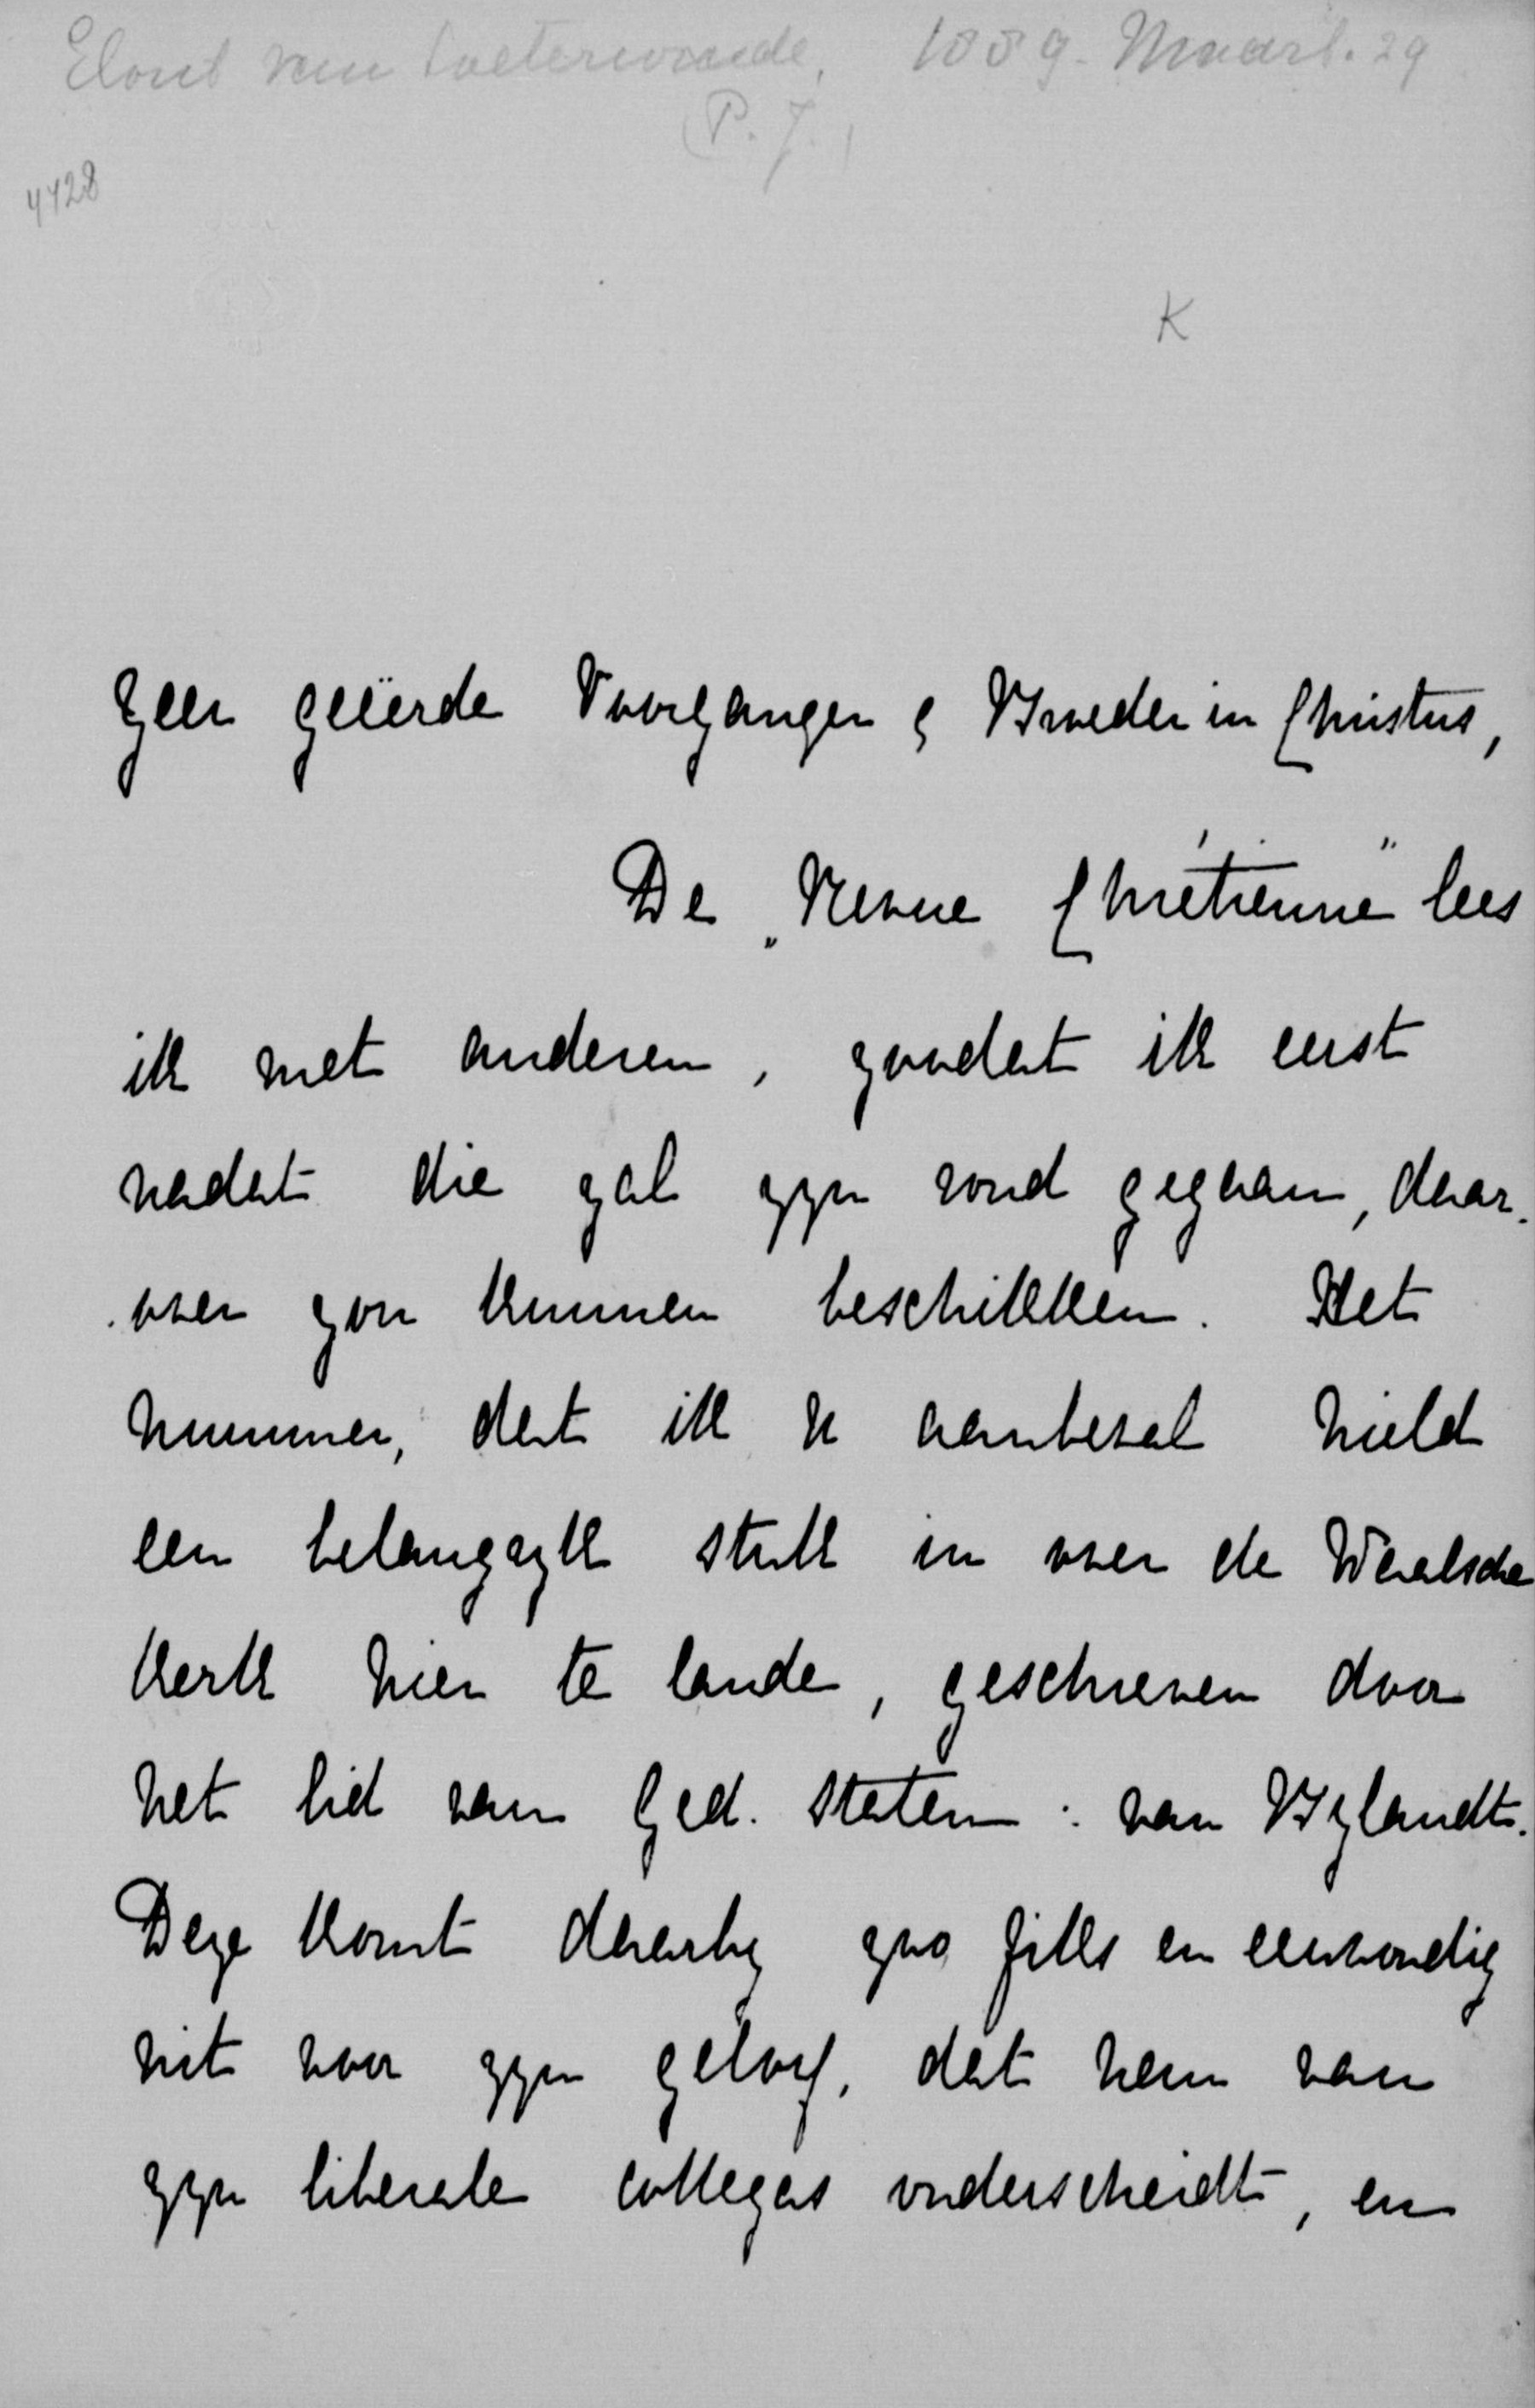 Elout van Soeterwoude, 1889. Maart. 29
(P. J.)
4428
K
Zeer geëerde Voorganger & Broeder in Christus,
De „Revue Chrétienne" lees
ik met anderen, zoodat ik eerst
nadat die zal zijn rond gegaan, daar-
over zou kunnen beschikken. Het
nummer, dat ik U aanbeval hield
een belangrijk stuk in over de Waalsche
kerk hier te lande, geschreven door
het lid van Ged. Staten: van Bylandt.
Deze komt daarby zoo fiks en eenvoudig
uit voor zyn geloof, dat hem van
zyn liberale collegas onderscheidt, en